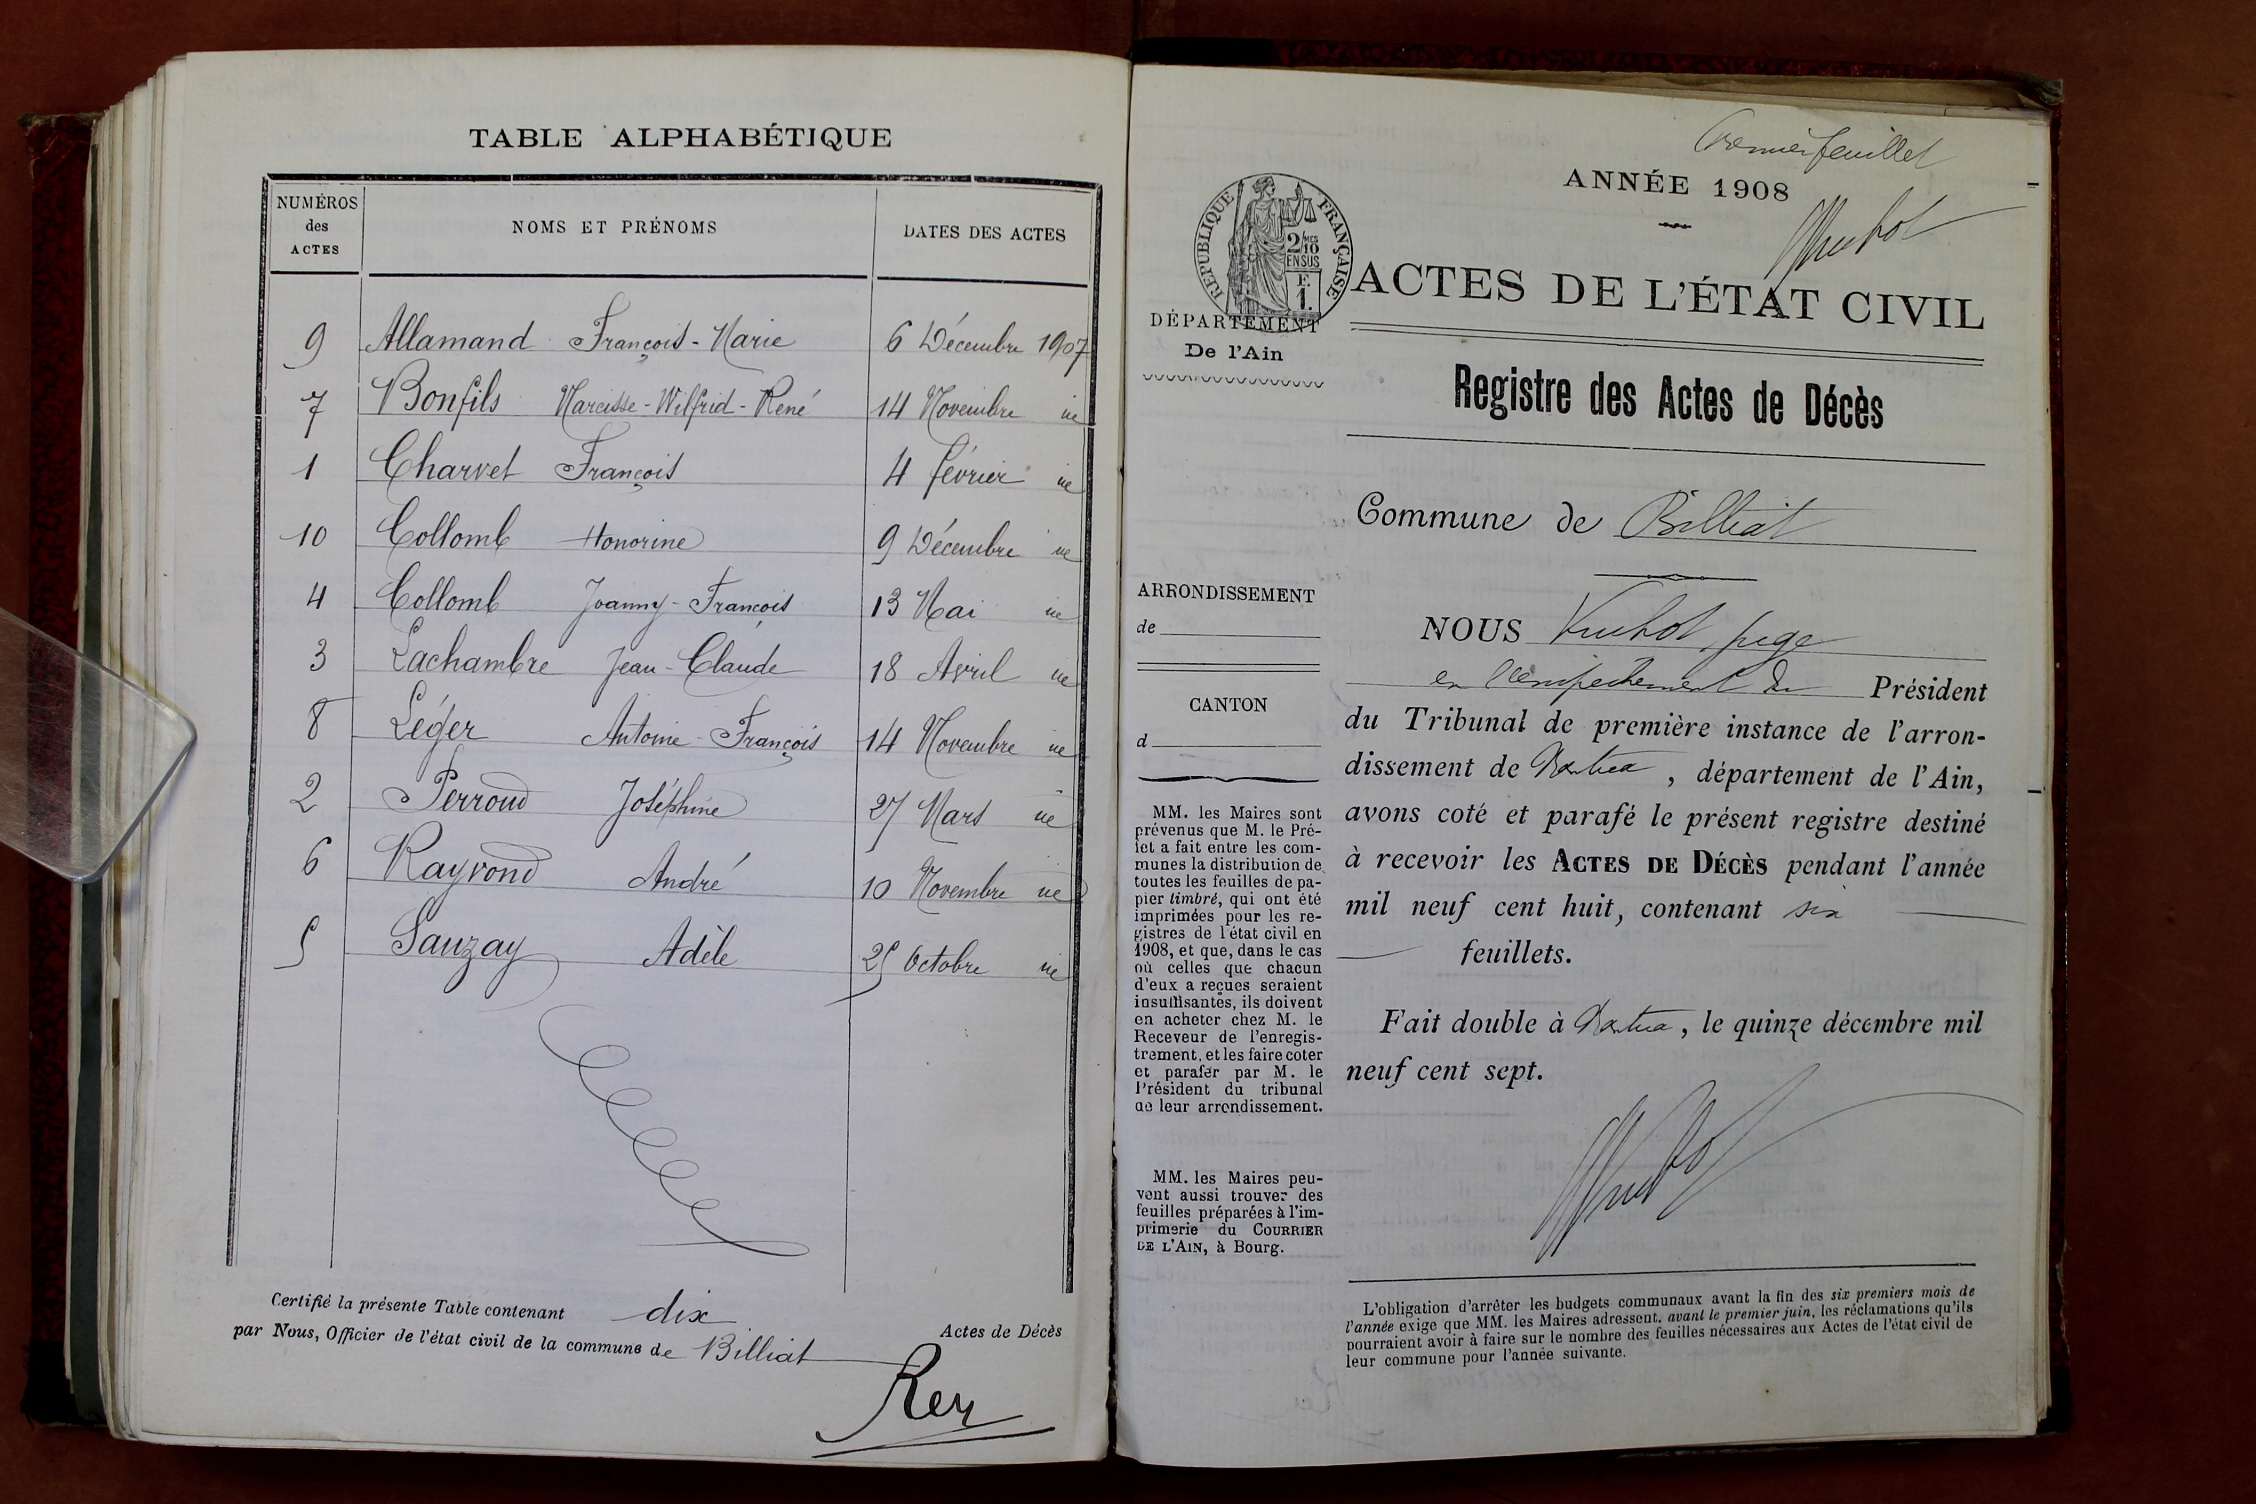 TABLE ALPHABÉTIQUE
NUMÉROS des ACTES NOMS ET PRÉNOMS DATES DES ACTES
9 Allamand François-Marie 6 Décembre 1907
7 Bonfils Narcisse-Wilfrid-René 14 Novembre id
1 Charvet François 4 février id
10 Collomb Honorine 9 Décembre id
4 Collomb Joanny-François 13 Mai id
3 Lachambre Jean-Claude 18 Avril id
8 Léger Antoine-François 14 Novembre id
2 Perroud Joséphine 27 Mars id
6 Rayrond André 10 Novembre id
5 Sauzay Adèle 25 Octobre id
Certifié la présente Table contenant dix Actes de Décès
par Nous, Officier de l'état civil de la commune de Billiat
Rey
Premier feuillet
ANNÉE 1908
RÉPUBLIQUE FRANÇAISE
2/10 MES EN SUS
F. 1.
ACTES DE L'ÉTAT CIVIL
DÉPARTEMENT
De l'Ain
Registre des Actes de Décès
Commune de Billiat
ARRONDISSEMENT
de
CANTON
d
NOUS juge
en l'empêchement du Président
du Tribunal de première instance de l'arron-
dissement de Nantua, département de l'Ain,
avons coté et parafé le présent registre destiné
à recevoir les ACTES DE DÉCÈS pendant l'année
mil neuf cent huit, contenant six
feuillets.
Fait double à Nantua, le quinze décembre mil
neuf cent sept.
MM. les Maires sont
prévenus que M. le Pré-
fet a fait entre les com-
munes la distribution de
toutes les feuilles de pa-
pier timbré, qui ont été
imprimées pour les re-
gistres de l'état civil en
1908, et que, dans le cas
où celles que chacun
d'eux a reçues seraient
insuffisantes, ils doivent
en acheter chez M. le
Receveur de l'enregis-
trement, et les faire coter
et parafer par M. le
Président du tribunal
de leur arrondissement.
MM. les Maires peu-
vent aussi trouver des
feuilles préparées à l'im-
primerie du COURRIER
DE L'AIN, à Bourg.
L'obligation d'arrêter les budgets communaux avant la fin des six premiers mois de
l'année exige que MM. les Maires adressent, avant le premier juin, les réclamations qu'ils
pourraient avoir à faire sur le nombre des feuilles nécessaires aux Actes de l'état civil de
leur commune pour l'année suivante.